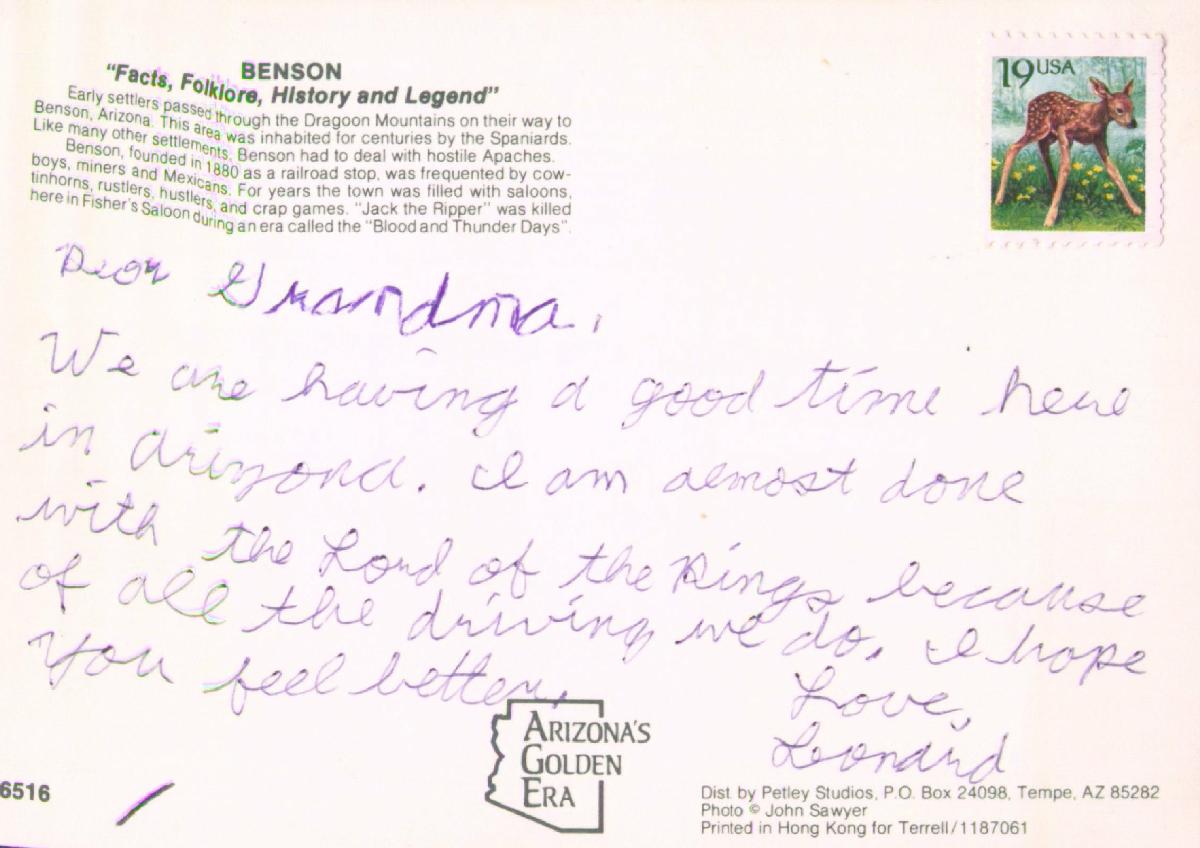 BENSON
"Facts, Folklore, History and Legend"
Early settlers passed through the Dragoon Mountains on their way to
Benson, Arizona. This area was inhabited for centuries by the Spaniards.
Like many other settlements, Benson had to deal with hostile Apaches.
Benson, founded in 1880 as a railroad stop, was frequented by cow-
boys, miners and Mexicans. For years the town was filled with saloons,
tinhorns, rustlers, hustlers, and crap games. "Jack the Ripper" was killed
here in Fisher's Saloon during an era called the "Blood and Thunder Days".
19 USA
Dear Grandma,
We are having a good time here
in arizona. I am almost done
with the Lord of the Rings because
of all the driving we do. I hope
you feel better,
Love,
Leonard
ARIZONA'S
GOLDEN
ERA
6516
Dist. by Petley Studios, P.O. Box 24098, Tempe, AZ 85282
Photo © John Sawyer
Printed in Hong Kong for Terrell/1187061